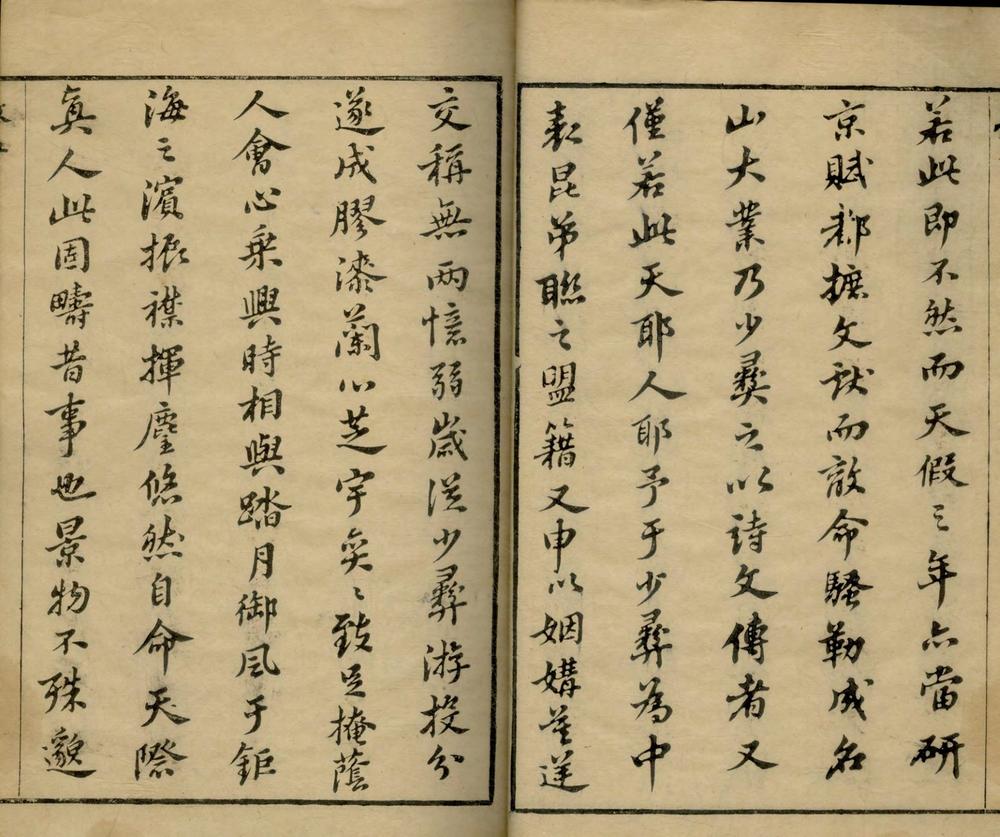 若此即不然而天假之年亦當研
京賦都摭文獻而敵命騷勒成名
山大業乃少彞之以詩文傳者又
僅若此天耶人耶予于少彞為中
表昆弟聯之盟籍又申以姻媾莫逆
交稱無兩憶弱歲從少彞游投分
遂成膠漆蘭心芝宇奕〻致足掩蔭
人會心乗興時相與踏月御風于鉅
海之濵振襟揮麈悠然自命天際
真人此固疇昔事也景物不殊邈